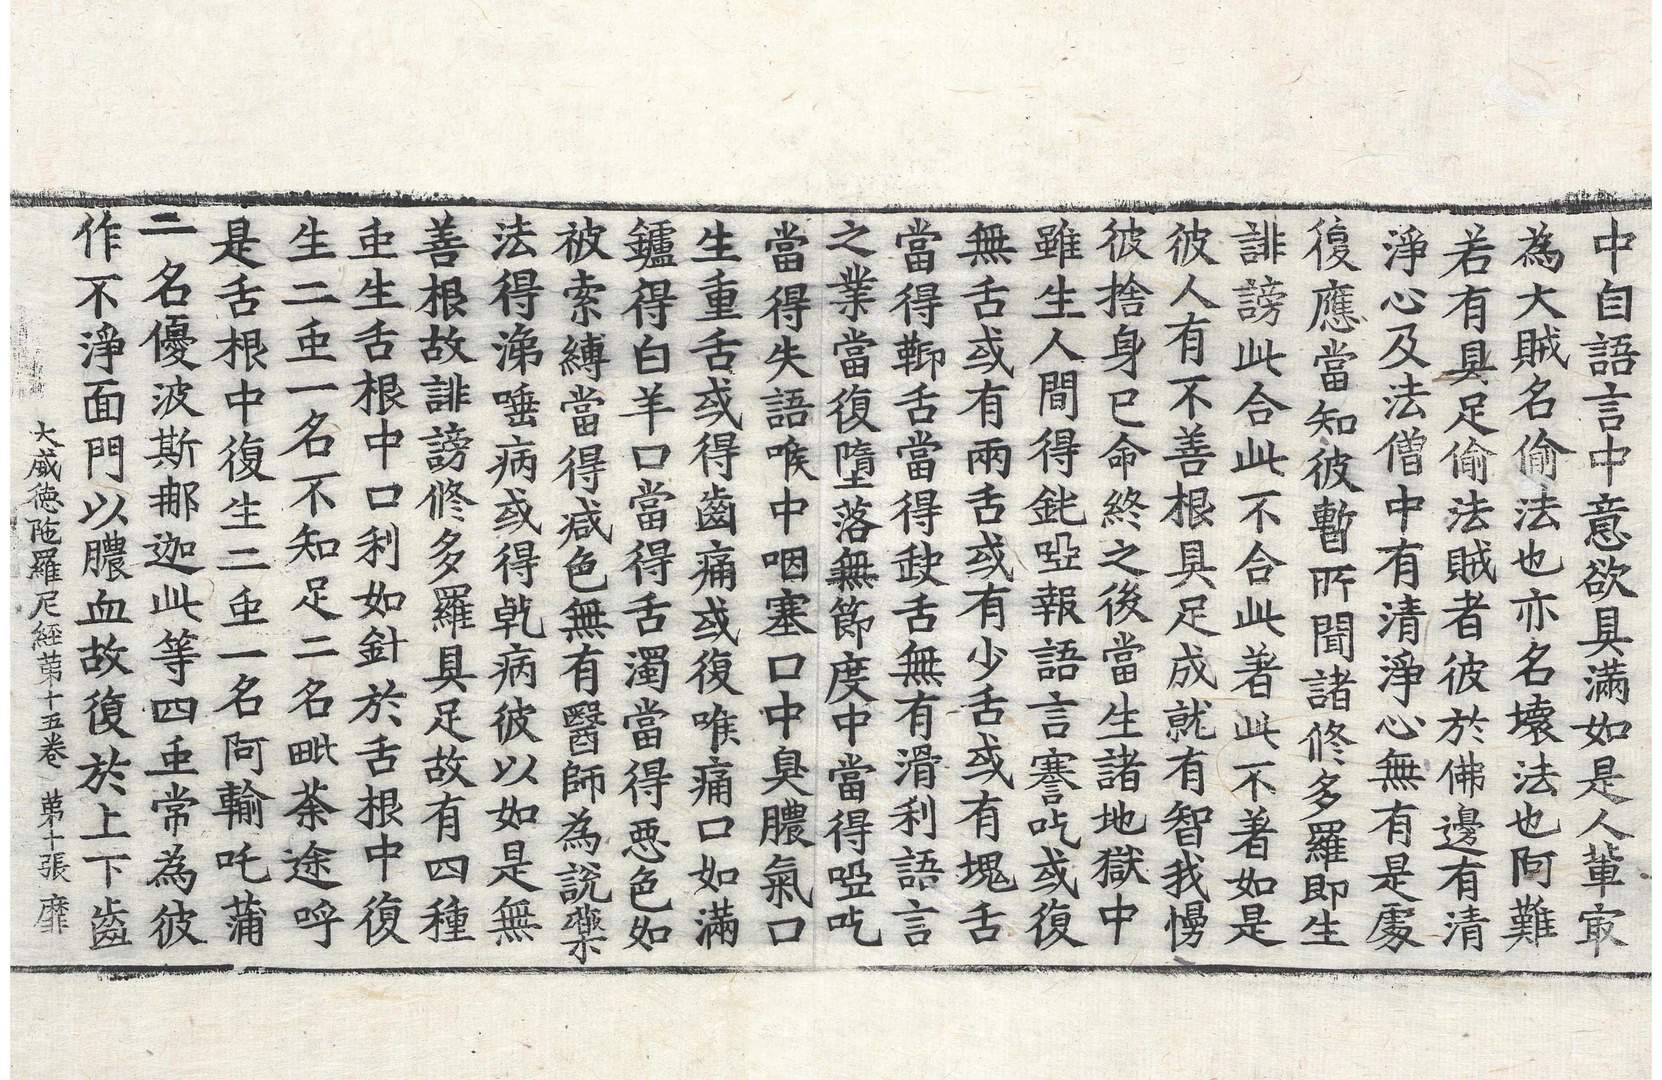 中自語言中意欲具滿如是人輩㝡
為大賊名偷法也亦名壞法也阿難
若有具足偷法賊者彼於佛邊有清
淨心及法僧中有清淨心無有是處
復應當知彼暫所聞諸修多羅即生
誹謗此合此不合此著此不著如是
彼人有不善根具足成就有智我慢
彼捨身已命終之後當生諸地獄中
雖生人間得鈍瘂報語言謇吃或復
無舌或有兩舌或有少舌或有塊舌
當得䩕舌當得缺舌無有滑利語言
之業當復墮落無節度中當得啞吃
當得失語喉中咽塞口中臭膿氣口
生重舌或得齒痛或復喉痛口如滿
鑪得白羊口當得舌濁當得惡色如
被索縛當得减色無有醫師為説藥
法得涕唾病或得乹病彼以如是無
善根故誹謗修多羅具足故有四種
虫生舌根中口利如針於舌根中復
生二虫一名不知足二名毗荼途呼
是舌根中復生二虫一名阿輸吒蒲
二名優波斯那迦此等四虫常為彼
作不淨面門以膿血故復於上下齒
大威德陁羅尼經第十五卷 第十張 靡